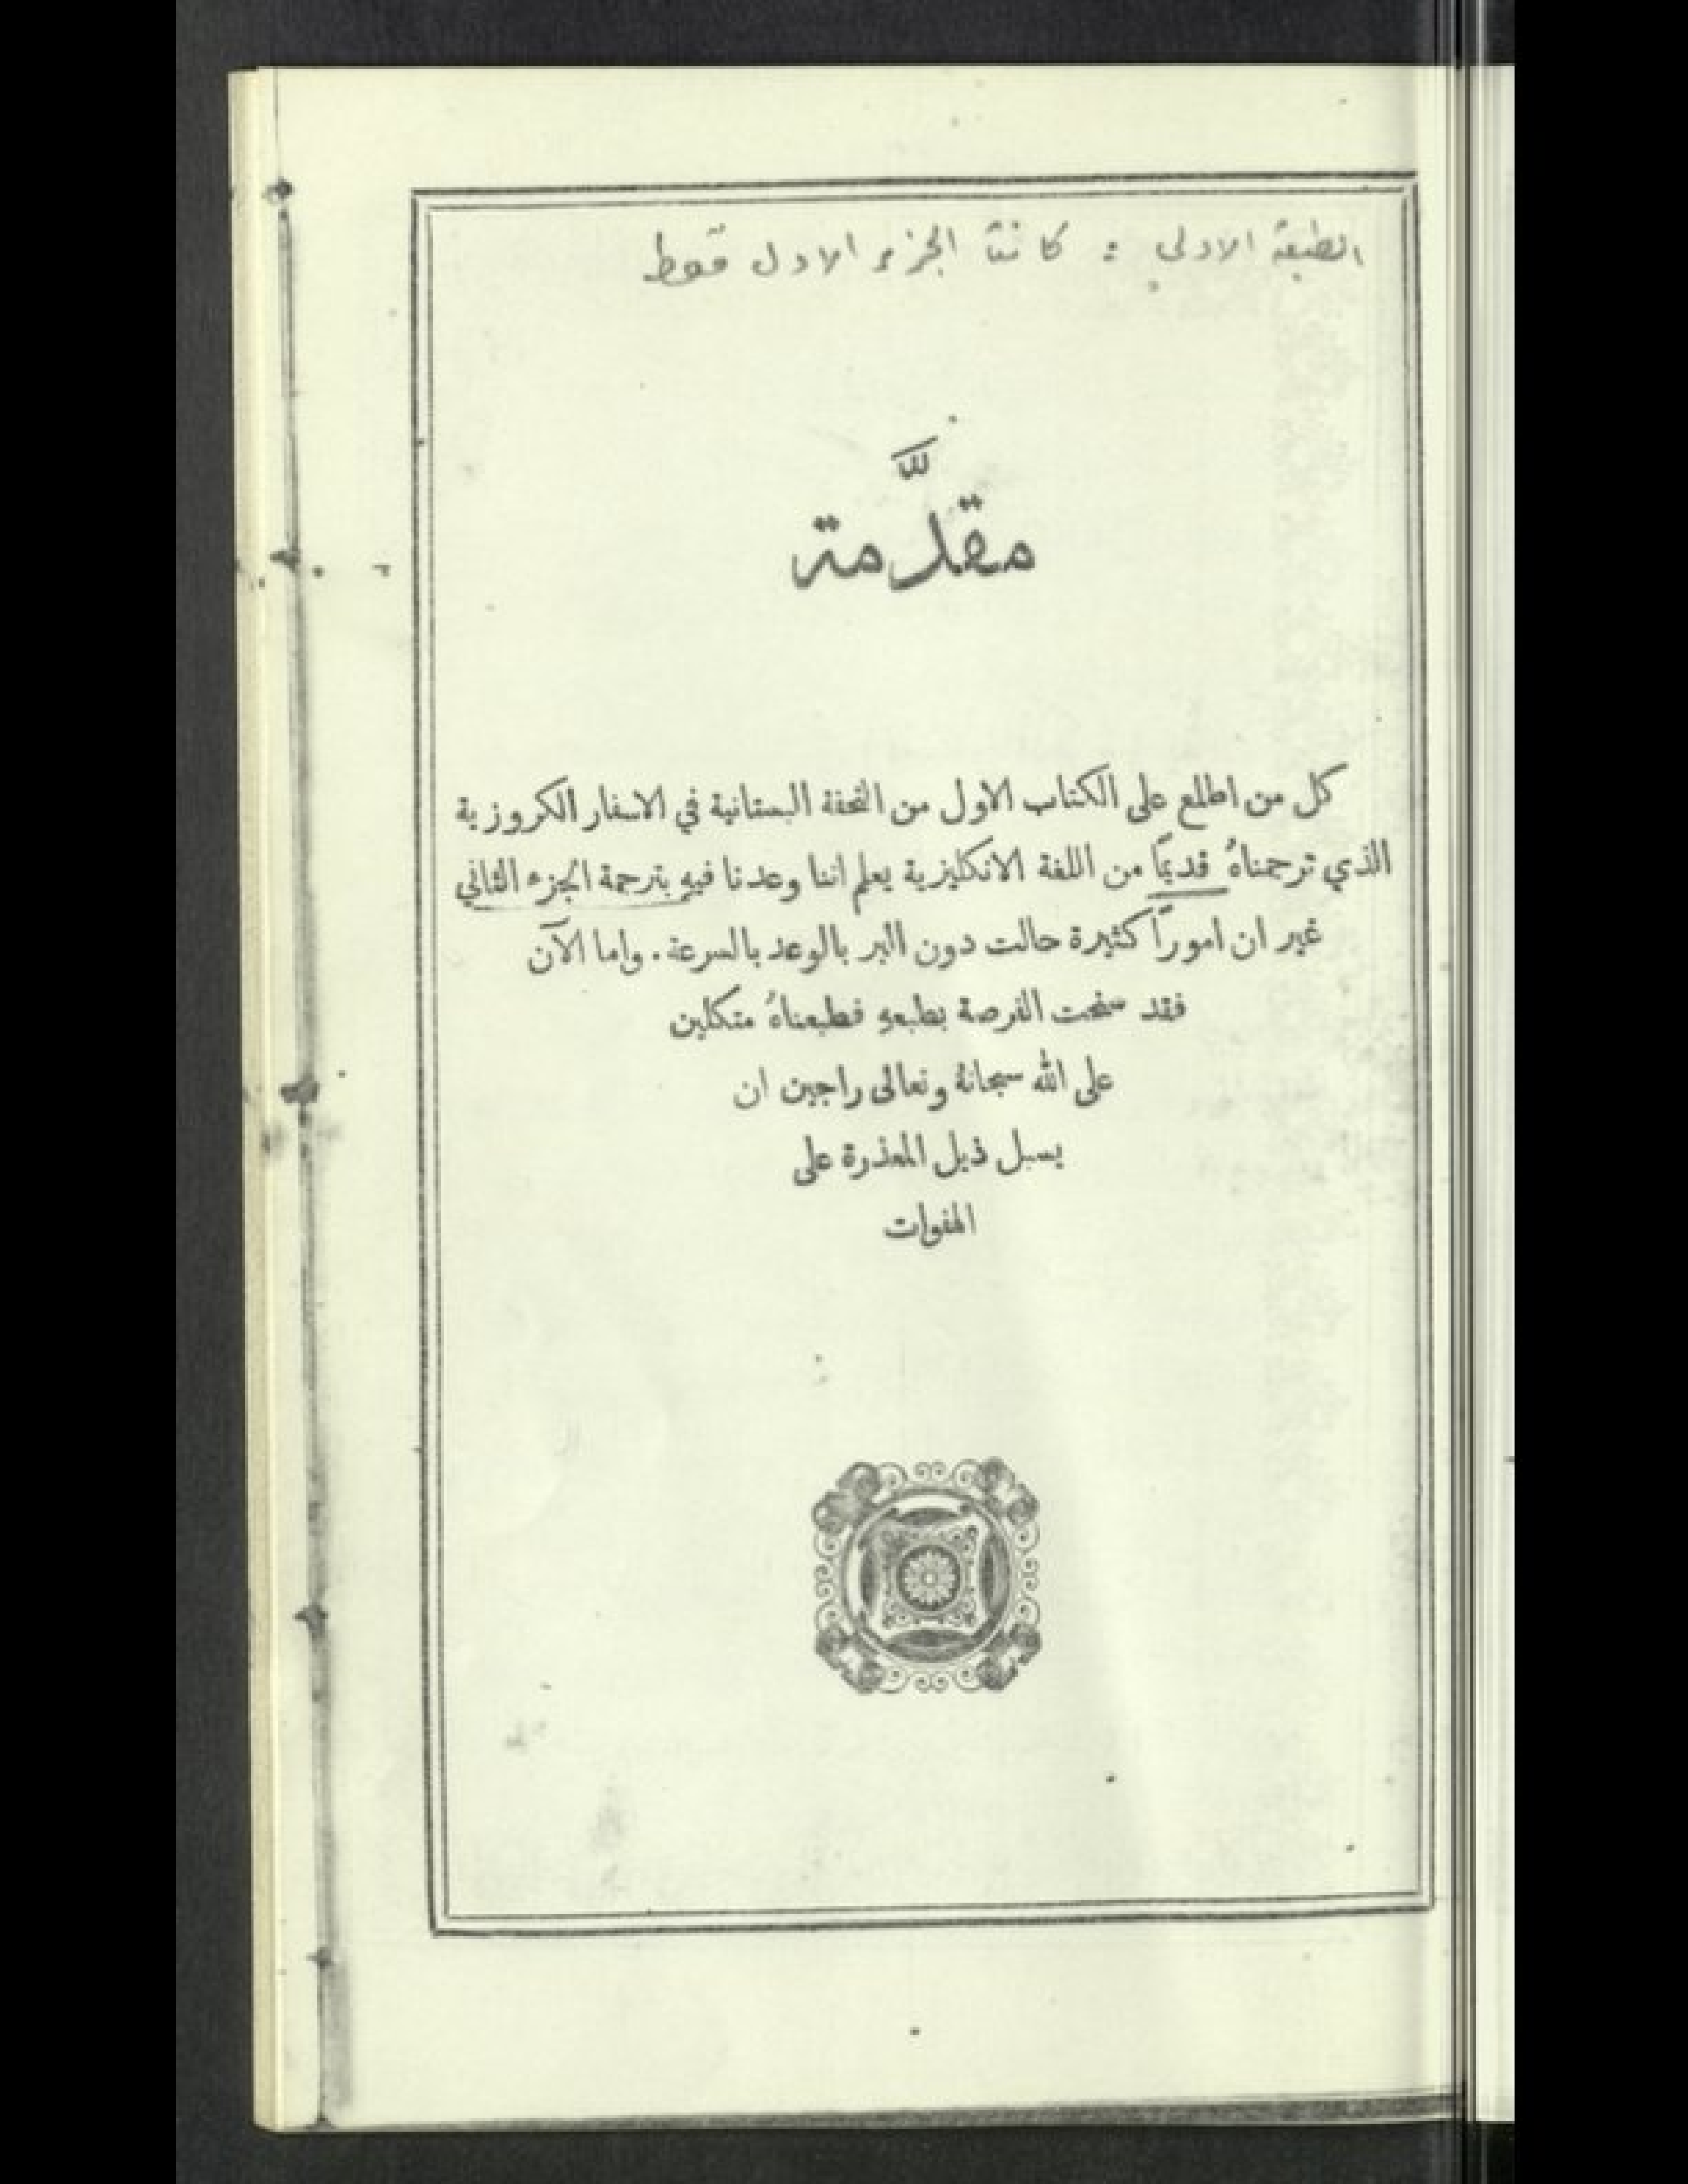 الطبعة الاولى : كانت الجزء الاول فقط
مقدَّمة
كل من اطلع على الكتاب الاول من التحفة البستانية في الاسفار الكروزية
الذي ترجمناهُ قديمًا من اللغة الانكليزية يعلم اننا وعدنا فيهِ بترجمة الجزء الثاني
غير ان امورًا كثيرة حالت دون البر بالوعد بالسرعة . واما الآن
فقد سنحت الفرصة بطبعهِ فطبعناهُ متكلين
على الله سبحانهُ وتعالى راجين ان
يسبل ذيل المعذرة على
الهفوات